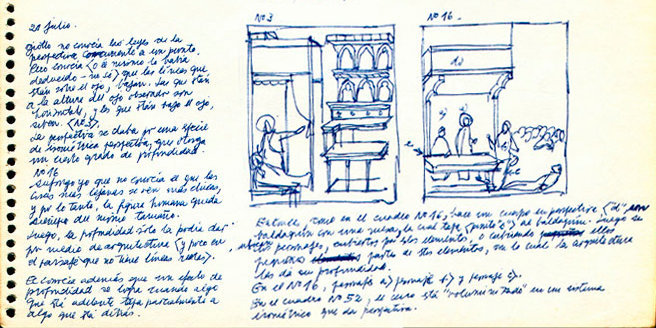 21 julio.
Giotto no conocía las leyes de la
perspectiva concurrente a un punto.
Pero conocía (o él mismo lo había
deducido - no sé) que las líneas que
están sobre el ojo, bajan. Las que están
a la altura del ojo observado son
horizontales, y las que están bajo el ojo,
suben. (Nº3)
La perspectiva se daba por una especie
de isométrica perspectiva, que otorga
un cierto grado de profundidad.
Nº 16
Supongo yo que no conocía el que las
cosas más lejanas se ven más chicas,
y por lo tanto, la figura humana queda
siempre del mismo tamaño.
Luego, la profundidad sólo la podía dar
por medio de arquitectura (y poco en
el paisaje que no tiene líneas rectas).
El conocía además que un efecto de
profundidad se logra cuando algo
que está adelante tapa parcialmente a
algo que está detrás.
Nº3
Nº 16.
Entonces, como en el cuadro Nº 16, hace un cuerpo en perspectiva
baldaquin con una mesa, la cual tapa de baldaquin. Luego se
personajes, cubiertos por estos elementos, o cubriendo ellos
parte de estos elementos, en lo cual la arquitectura
les da su profundidad.
En el Nº16, personaje a) personaje b) y personaje c).
En el cuadro Nº 52, el muro está "volumenizado" en un sistema
isométrico que da perspectiva.